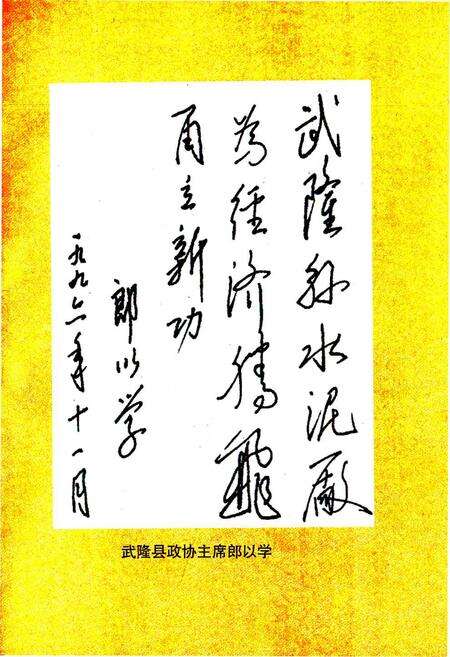 武隆县水泥厂
为经济腾飞
再立新功
郎以学
一九九六年十一月
武隆县政协主席郎以学